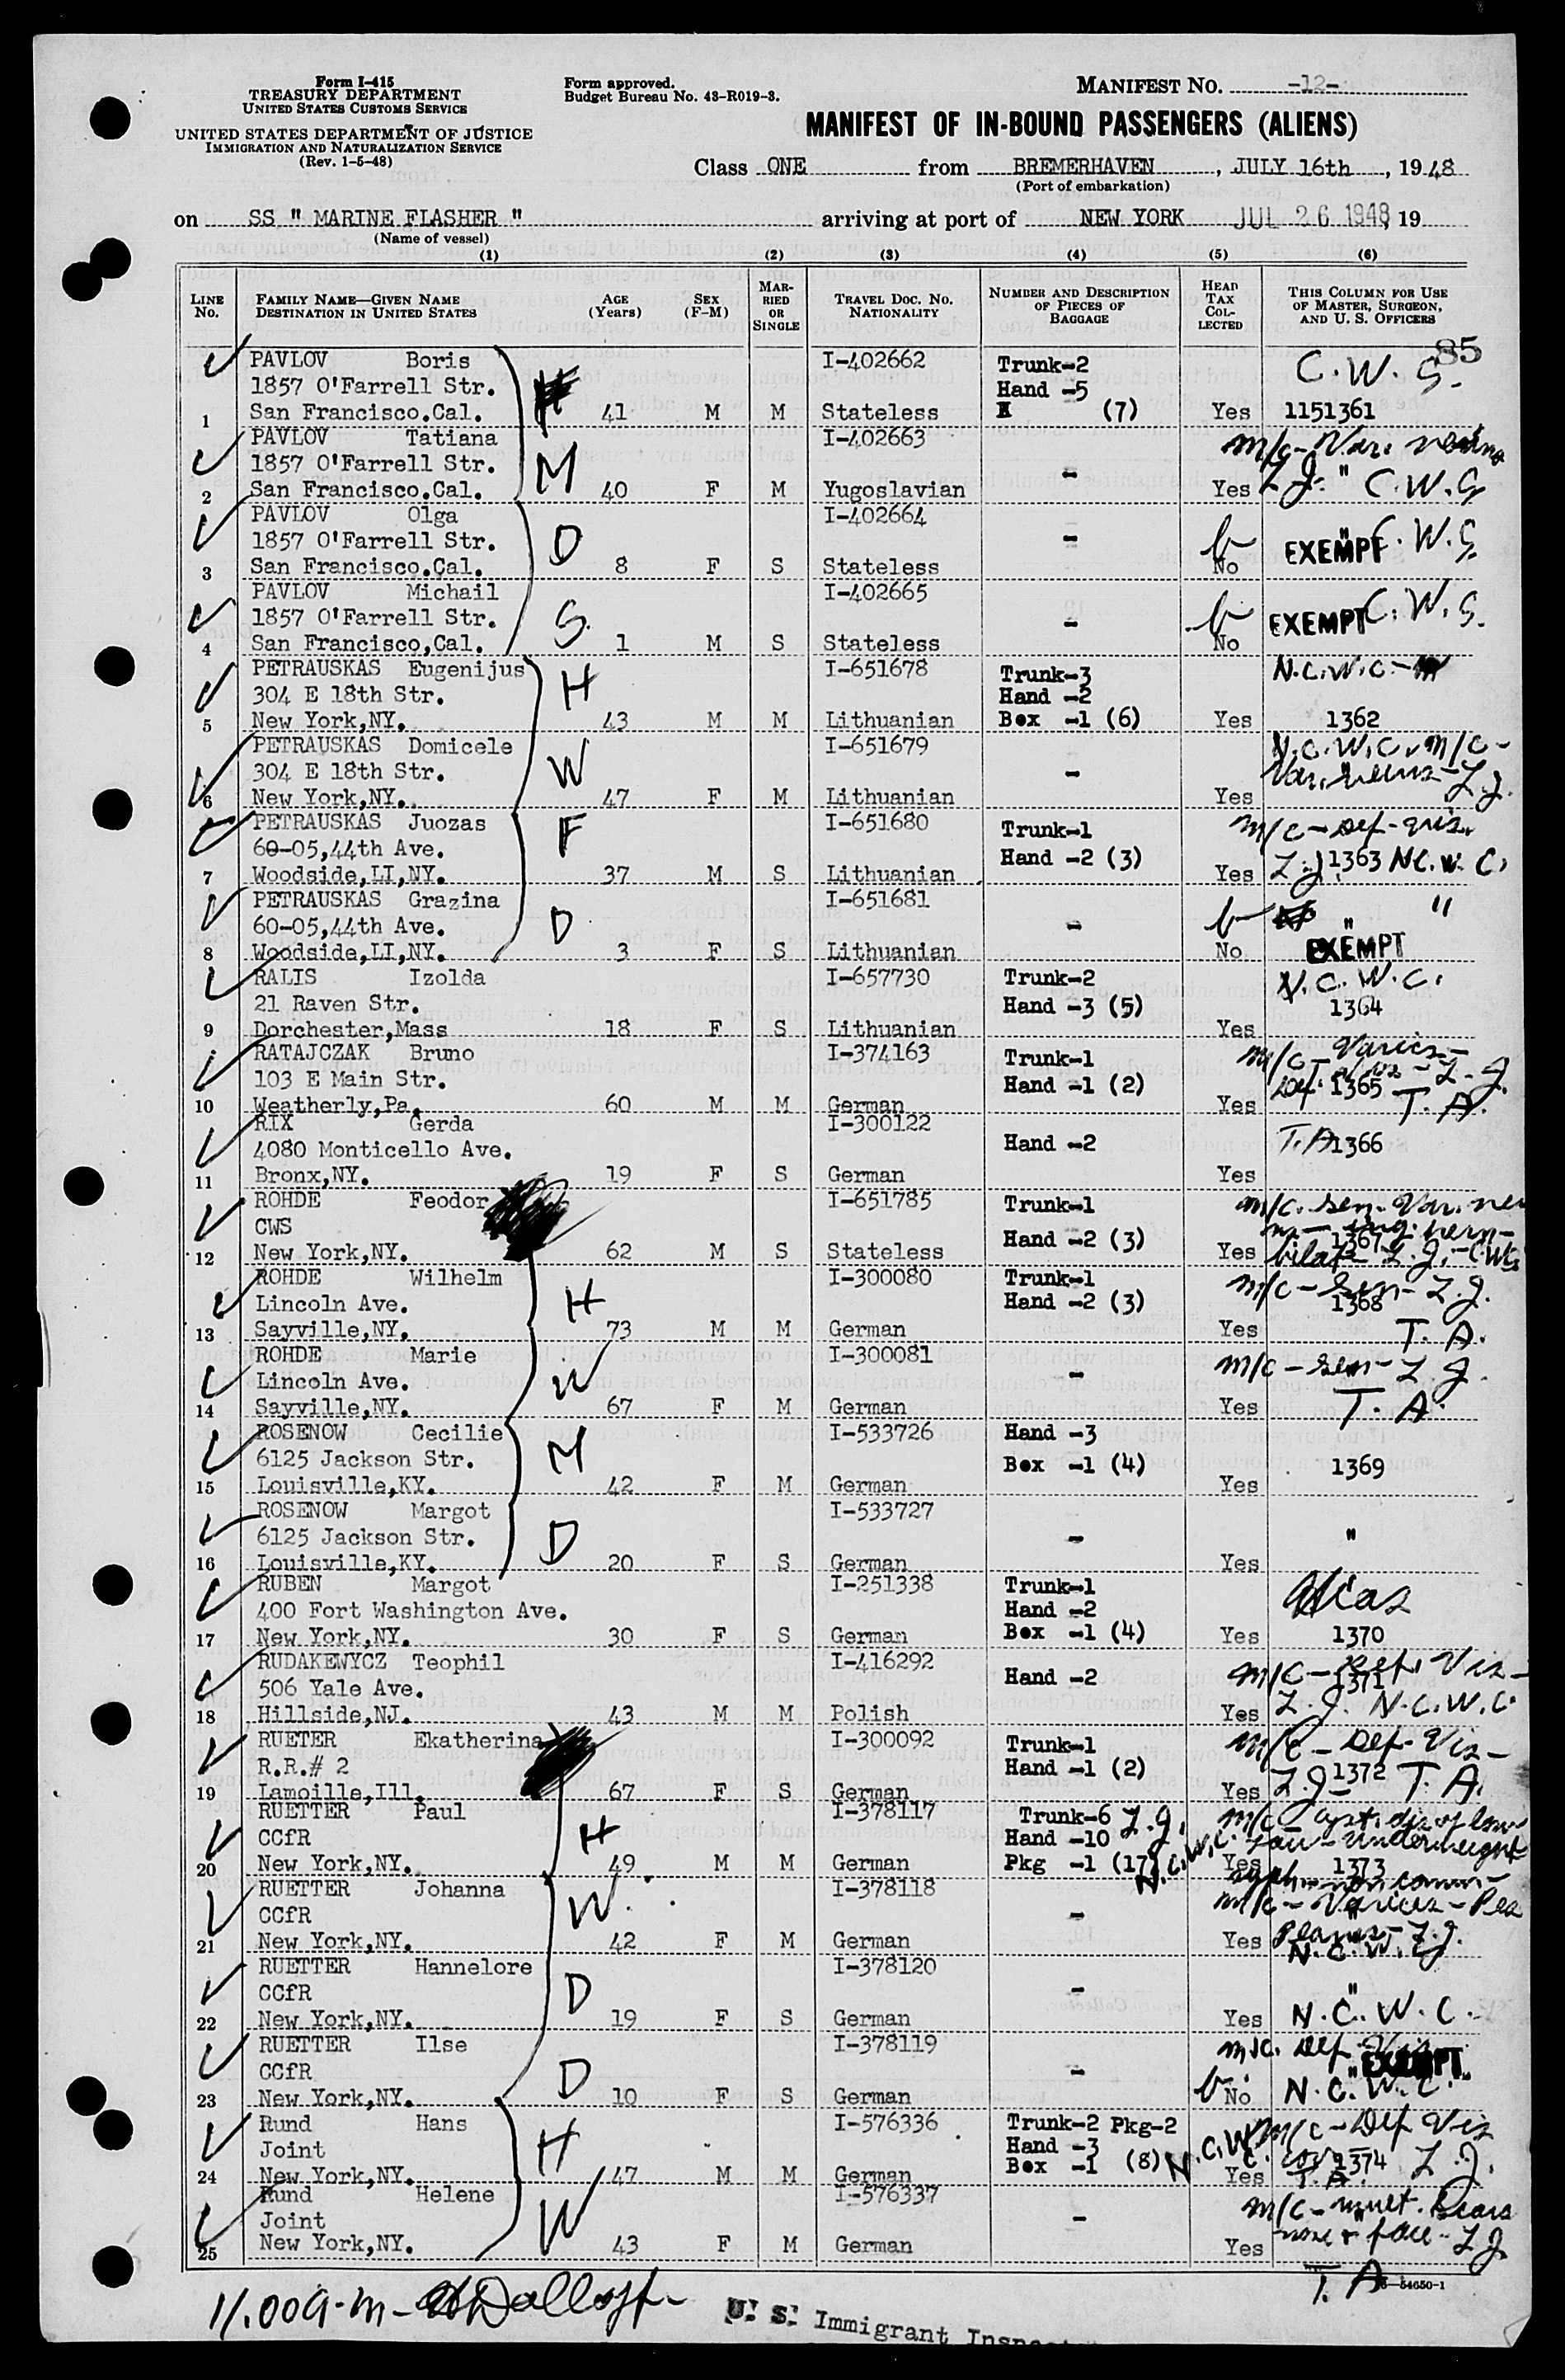 Form I-415
TREASURY DEPARTMENT
UNITED STATES CUSTOMS SERVICE
UNITED STATES DEPARTMENT OF JUSTICE
IMMIGRATION AND NATURALIZATION SERVICE
(Rev. 1-5-48)
Form approved.
Budget Bureau No. 43-R019-3.
MANIFEST NO. -12-
MANIFEST OF IN-BOUND PASSENGERS (ALIENS)
Class ONE from BREMERHAVEN, JULY 16th, 1948
(Port of embarkation)
on SS " MARINE FLASHER " arriving at port of NEW YORK JUL 26 1948, 19
(Name of vessel)
(1) (2) (3) (4) (5) (6)
LINE NO. FAMILY NAME—GIVEN NAME DESTINATION IN UNITED STATES AGE (Years) SEX (F-M) MARRIED OR SINGLE TRAVEL DOC. NO. NATIONALITY NUMBER AND DESCRIPTION OF PIECES OF BAGGAGE HEAD TAX COLLECTED THIS COLUMN FOR USE OF MASTER, SURGEON, AND U. S. OFFICERS
85
PAVLOV Boris I-402662 Trunk-2 C.W.S.
1857 O'Farrell Str. Hand -5
1 San Francisco.Cal. 41 M M Stateless (7) Yes 1151361
PAVLOV Tatiana I-402663 m/c-Var. veins
1857 O'Farrell Str. M -
2 San Francisco.Cal. 40 F M Yugoslavian Yes L.J. " C.W.S
PAVLOV Olga I-402664
1857 O'Farrell Str. D - EXEMPT C.W.S.
3 San Francisco.Cal. 8 F S Stateless No
PAVLOV Michail I-402665
1857 O'Farrell Str. S. - EXEMPT C.W.S.
4 San Francisco,Cal. 1 M S Stateless No
PETRAUSKAS Eugenijus I-651678 Trunk-3 N.C.W.C.-
304 E 18th Str. H Hand -2
5 New York,NY. 43 M M Lithuanian Box -1 (6) Yes 1362
PETRAUSKAS Domicele I-651679 N.C.W.C. m/c-
304 E 18th Str. W - Var. veins-L.J.
6 New York,NY. 47 F M Lithuanian Yes
PETRAUSKAS Juozas F I-651680 Trunk-1 m/c-Def-vis.
60-05,44th Ave. Hand -2 (3)
7 Woodside,LI,NY. 37 M S Lithuanian Yes L.J. 1363 N.C.W.C.
PETRAUSKAS Grazina I-651681 "
60-05,44th Ave. D - "
8 Woodside,LI,NY. 3 F S Lithuanian No EXEMPT
RALIS Izolda I-657730 Trunk-2 N.C.W.C.
21 Raven Str. Hand -3 (5) 1364
9 Dorchester,Mass 18 F S Lithuanian Yes
RATAJCZAK Bruno I-374163 Trunk-1 m/c-Varices-
103 E Main Str. Hand -1 (2) Def. vis-L.J. 1365
10 Weatherly,Pa. 60 M M German Yes T.A.
RIX Gerda I-300122
4080 Monticello Ave. Hand -2 T.A. 1366
11 Bronx,NY. 19 F S German Yes
ROHDE Feodor I-651785 Trunk-1 m/c. sen. Var.
CWS Hand -2 (3) 1367
12 New York,NY. 62 M S Stateless Yes bilat- L.J.-CWS
ROHDE Wilhelm I-300080 Trunk-1 m/c-Sen-L.J.
Lincoln Ave. H Hand -2 (3) 1368
13 Sayville,NY. 73 M M German Yes T.A.
ROHDE Marie I-300081 m/c-sen-L J.
Lincoln Ave. W -
14 Sayville,NY. 67 F M German Yes T.A.
ROSENOW Cecilie I-533726 Hand -3
6125 Jackson Str. M Box -1 (4) 1369
15 Louisville,KY. 42 F M German Yes
ROSENOW Margot I-533727
6125 Jackson Str. D - "
16 Louisville,KY. 20 F S German Yes
RUBEN Margot I-251338 Trunk-1 Hias
400 Fort Washington Ave. Hand -2
17 New York,NY. 30 F S German Box -1 (4) Yes 1370
RUDAKEWYCZ Teophil I-416292 Hand -2 m/c-Def. Vis-
506 Yale Ave. 1371
18 Hillside,NJ. 43 M M Polish Yes L.J. N.C.W.C.
RUETER Ekatherina I-300092 Trunk-1 m/c-Def-Vis-
R.R.# 2 Hand -1 (2)
19 Lamoille,Ill. 67 F S German Yes L.J- 1372 T.A.
RUETTER Paul I-378117 Trunk-6 L.J. m/c-
CCfR H Hand -10 underweight
20 New York,NY. 49 M M German Pkg -1 (17) N.C.W.C. Yes 1373
RUETTER Johanna I-378118 m/c-Varices-Pes
CCfR W. - "
21 New York,NY. 42 F M German Yes Planus-L.J. N.C.W.C.
RUETTER Hannelore I-378120
CCfR D - "
22 New York,NY. 19 F S German Yes N.C.W.C.
RUETTER Ilse I-378119 m/c. Def. Vis
CCfR D - " EXEMPT
23 New York,NY. 10 F S German No N.C.W.C.
Rund Hans I-576336 Trunk-2 Pkg-2 m/c-Def Vis
Joint H Hand -3 N.C.W.C.
24 New York,NY. 47 M M German Box -1 (8) Yes 1374 L.J. T.A.
Rund Helene I-576337 m/c-mult. scars
Joint W - nose & face-L.J.
25 New York,NY. 43 F M German Yes
T.A. 16—54650-1
11.00a.m-
U. S. Immigrant